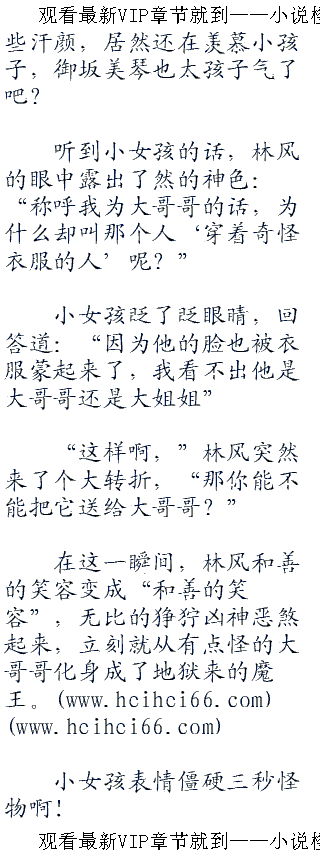 观看最新VIP章节就到——小说
些汗颜，居然还在羡慕小孩
子，御坂美琴也太孩子气了
吧？
听到小女孩的话，林风
的眼中露出了然的神色：
“称呼我为大哥哥的话，为
什么却叫那个人‘穿着奇怪
衣服的人’呢？”
小女孩眨了眨眼睛，回
答道：“因为他的脸也被衣
服蒙起来了，我看不出他是
大哥哥还是大姐姐”
“这样啊，”林风突然
来了个大转折，“那你能不
能把它送给大哥哥？”
在这一瞬间，林风和善
的笑容变成“和善的笑
容”，无比的狰狞凶神恶煞
起来，立刻就从有点怪的大
哥哥化身成了地狱来的魔
王。(www.hcihci66.com)
(www.hcihci66.com)
小女孩表情僵硬三秒怪
物啊！
观看最新VIP章节就到——小说